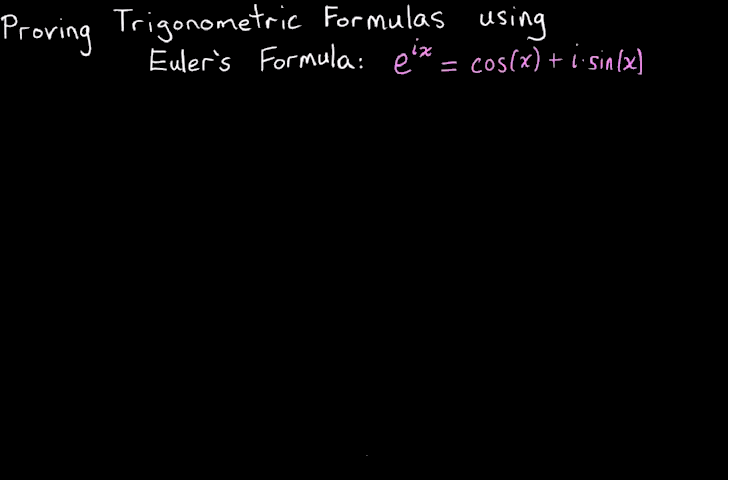 Proving Trigonometric Formulas using
Euler's Formula: e^{ix} = cos(x) + i·sin(x)